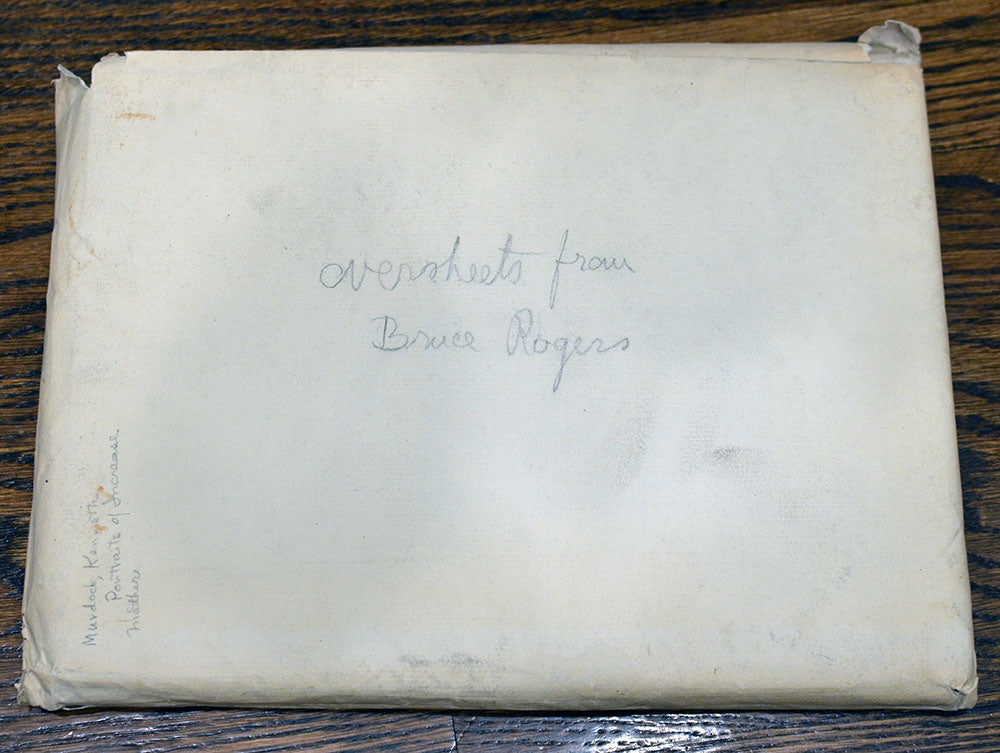 oversheets from
Bruce Rogers
Murdock, Kenneth
Portraits of Increase
Mather